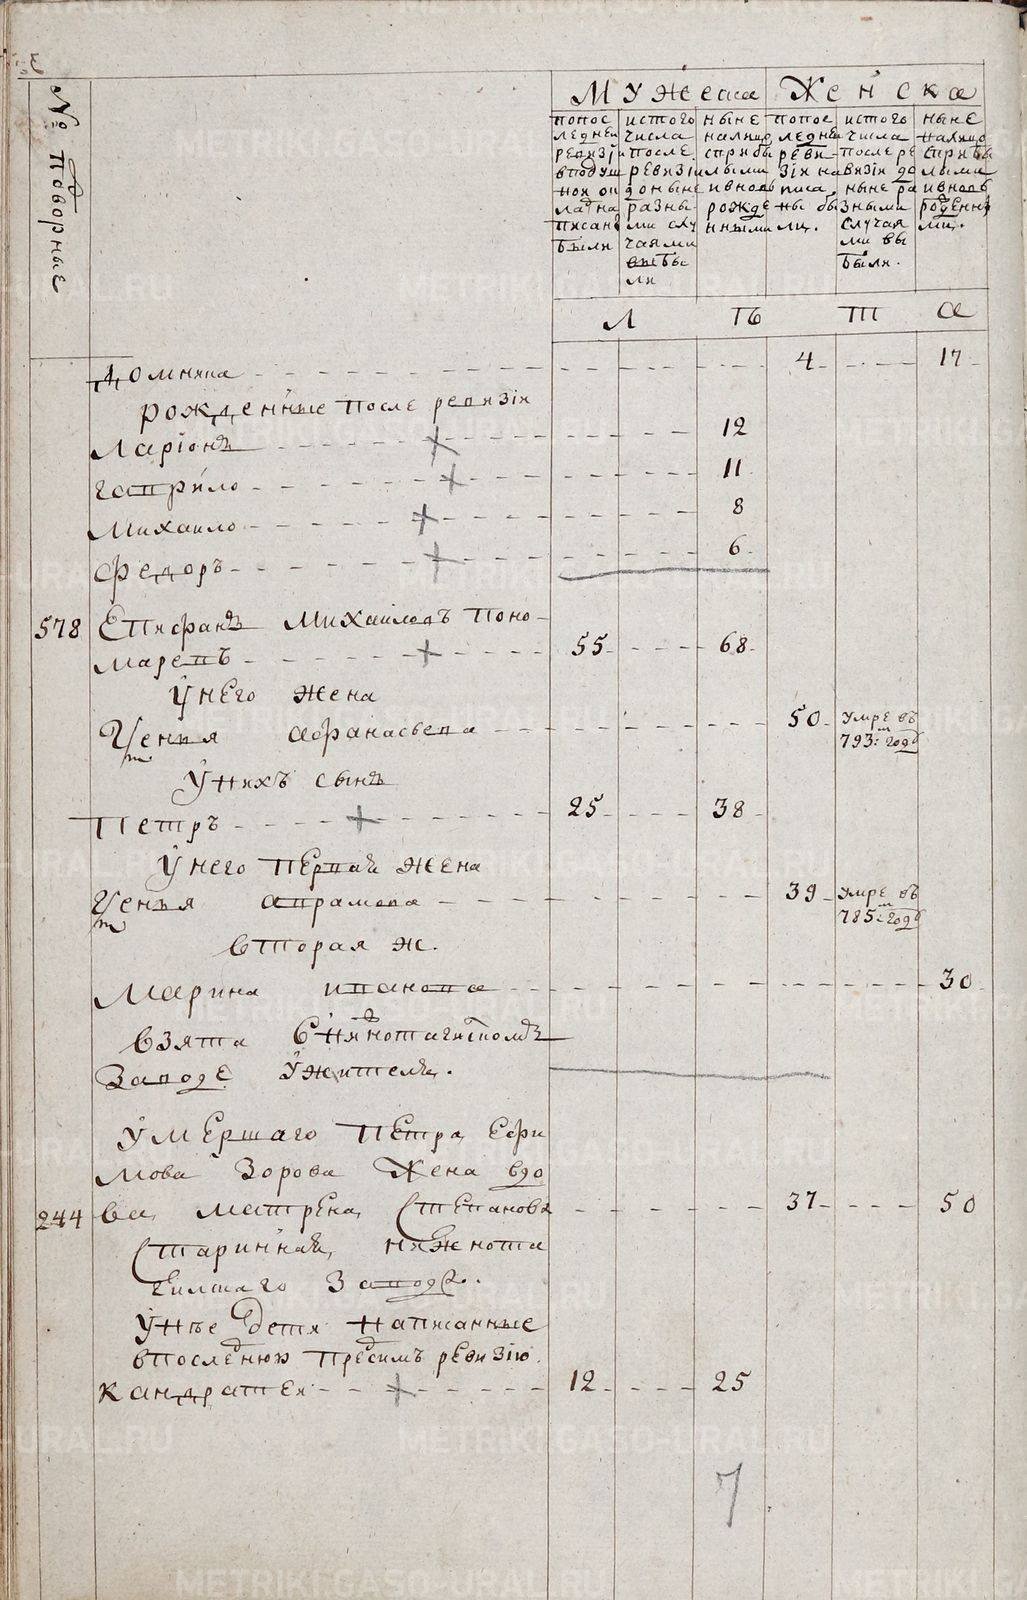 № подворные
Мужеска Женска
попос
ледней
ревизiи
вподуш
ной ок
ладна
писан
были
истого
числа
после
ревизiи
доныне
разны
ми слу
чаями
выбы
ли
ныне
налицо
сприбы
лыми
ивновь
рожде
нными
попос
ледне
реви
зiи на
писа
ны бы
ли.
истого
числа
после ре
визiи до
ныне ра
зными
случая
ми вы
были.
ныне
налицо
сприбы
лыми
ивновь
рожденны
ми.
Л Ѣ Т А
Домника 4 17
рожденные после ревизiи
Ларiонъ 12
гаврило 11
Михаило 8
Федоръ 6
578 Епифанъ Михаиловъ Поно-
маревъ 55 68
У него жена
Устенья афанасьева 50 умре въ
793: м годѣ
Унихъ сынъ
Петръ 25 38
Унего первая жена
Устенья аврамова 39 умре въ
785: м годѣ
вторая ж.
Марина иванова 30
взята внижнотагилскомъ
Заводе Ужителя.
Умершаго Петра Ефи
мова Зорова Жена вдо
244 ва Матрена Степанова 37 50
Стариннай нижнота
гилскаго Завода.
Унее дети написанные
впоследнюю пред симъ ревизiю
кандратей 12 25
7